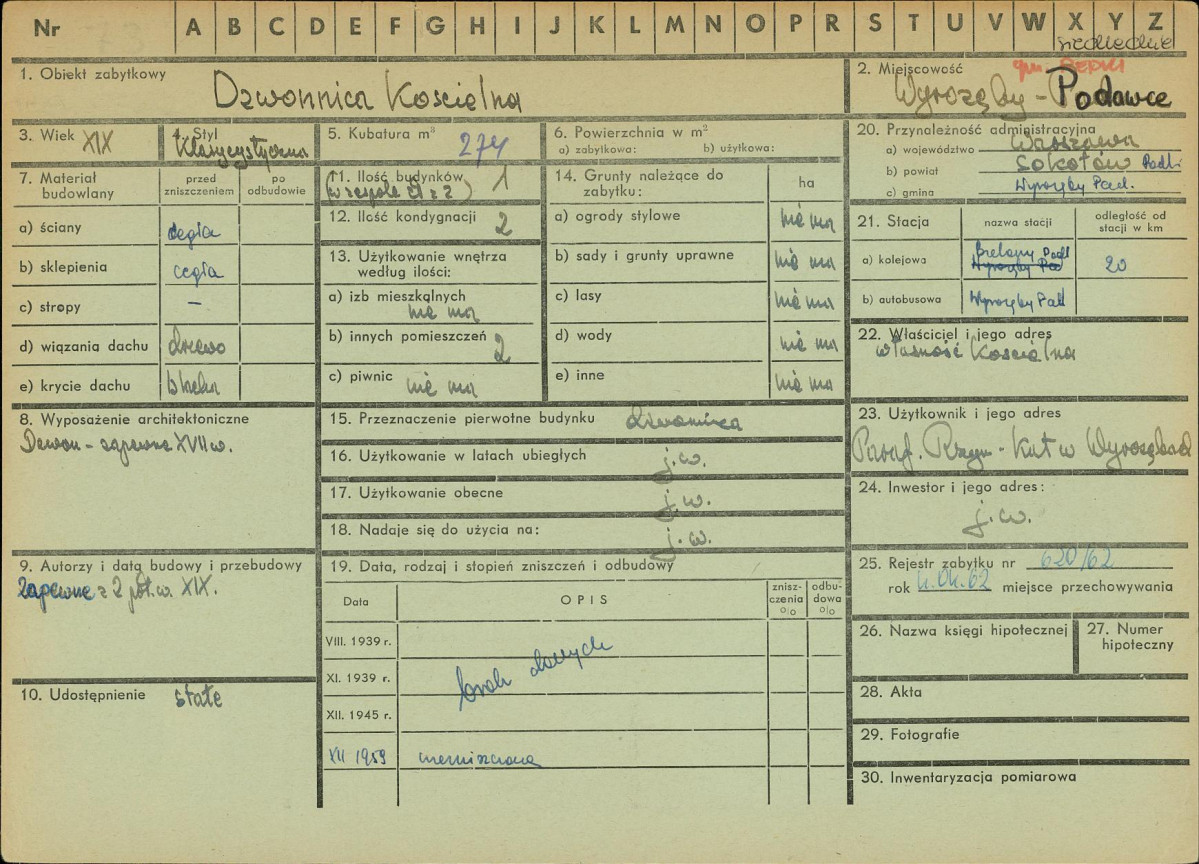 Nr A B C D E F G H I J K L M N O P R S T U V W X Y Z
siedleckie
1. Obiekt zabytkowy
Dzwonnica Kościelna
2. Miejscowość
gm. REPKI
Wyrozęby - Podawce
3. Wiek XIX
4. Styl
Klasycystyczna
5. Kubatura m³
274
6. Powierzchnia w m²
a) zabytkowa: b) użytkowa:
20. Przynależność administracyjna
a) województwo Warszawa
b) powiat Sokołów Podl.
c) gmina Wyrozęby Pod.
7. Materiał budowlany
przed zniszczeniem
po odbudowie
a) ściany cegła
b) sklepienia cegła
c) stropy –
d) wiązania dachu drewo
e) krycie dachu blacha
11. Ilość budynków 1
(w zespole
12. Ilość kondygnacji 2
13. Użytkowanie wnętrza
według ilości:
a) izb mieszkalnych
nie ma
b) innych pomieszczeń 2
c) piwnic nie ma
14. Grunty należące do
zabytku:
ha
a) ogrody stylowe nie ma
b) sady i grunty uprawne nie ma
c) lasy nie ma
d) wody nie ma
e) inne nie ma
21. Stacja
nazwa stacji
odległość od
stacji w km
a) kolejowa Bielany Podl 20
Wyrozęby Pod
b) autobusowa Wyrozęby Pod
22. Właściciel i jego adres
własność Kościelna
8. Wyposażenie architektoniczne
Dzwon - zapewne XVII w.
15. Przeznaczenie pierwotne budynku dzwonnica
16. Użytkowanie w latach ubiegłych j.w.
17. Użytkowanie obecne j.w.
18. Nadaje się do użycia na: j.w.
23. Użytkownik i jego adres
Paraf. Rzym-Kat w Wyrozębach
24. Inwestor i jego adres:
j.w.
9. Autorzy i data budowy i przebudowy
Zapewne z 2 poł. w. XIX.
10. Udostępnienie stałe
19. Data, rodzaj i stopień zniszczeń i odbudowy
Data
OPIS
znisz-
czenia
%
odbu-
dowa
%
VIII. 1939 r.
XI. 1939 r.
brak danych
XII. 1945 r.
XII 1959 niezniszczona
25. Rejestr zabytku nr 620/62
rok 4.04.62 miejsce przechowywania
26. Nazwa księgi hipotecznej
27. Numer
hipoteczny
28. Akta
29. Fotografie
30. Inwentaryzacja pomiarowa